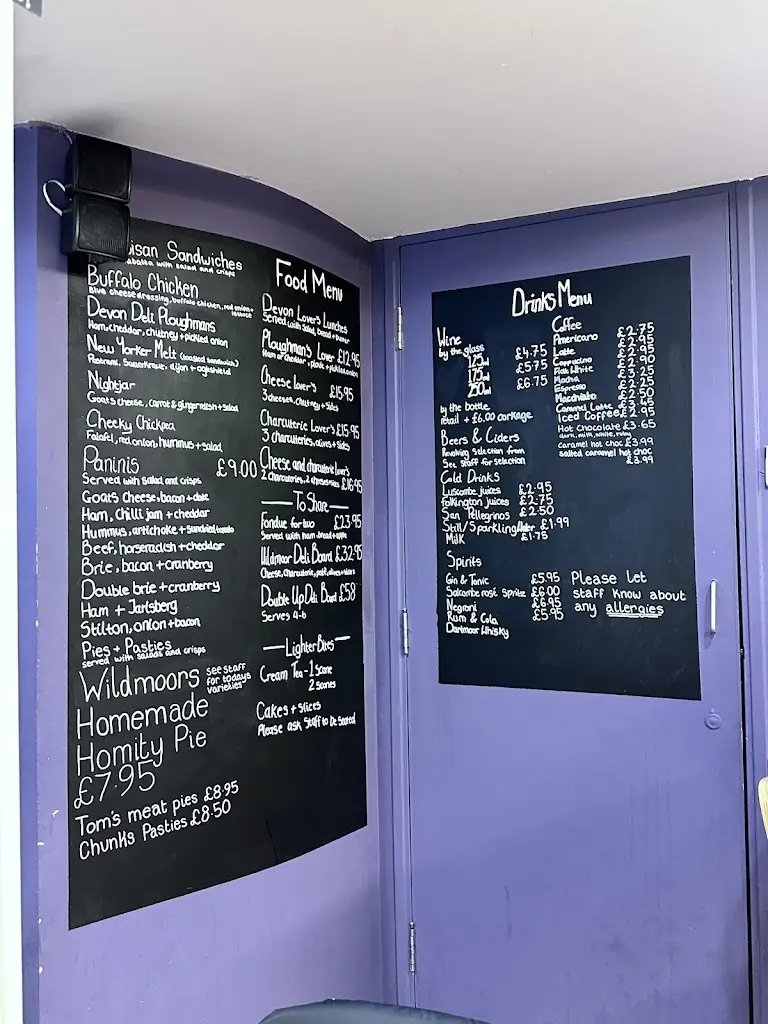 isan Sandwiches
abatta with salad and crisps
Buffalo Chicken
Blue cheese dressing, buffalo chicken, red onion +
lettuce
Devon Deli Ploughmans
Ham, cheddar, chutney + pickled onion
New Yorker Melt (toasted sandwich)
Pastrami, Sauerkraut, dijon + ogleshield
Nightjar
Goats cheese, carrot & ginger relish + salad
Cheeky Chickpea
Falafel, red onion, hummus + salad
Paninis £9.00
Served with salad and crisps
Goats cheese, bacon + date
Ham, chilli jam + cheddar
Hummus, artichoke + sundried tomato
Beef, horseradish + cheddar
Brie, bacon + cranberry
Double brie + cranberry
Ham + Jarlsberg
Stilton, onion + bacon
Pies + Pasties
served with salads and crisps
Wildmoors see staff
for todays
varieties
Homemade
Homity Pie
£7.95
Tom's meat pies £8.95
Chunks Pasties £8.50
Food Menu
Devon Lover's Lunches
Served with Salad, bread + butter
Ploughman's Lover £12.95
Ham or cheddar, pickle + pickled onion
Cheese lover's £15.95
3 cheeses, chutney + sides
Charcuterie Lover's £15.95
3 charcuteries, olives + sides
Cheese and charcuterie lover's
2 charcuteries, 2 cheeses £16.95
To Share
Fondue for two £23.95
Served with ham, bread + apple
Wildmoor Deli Board £32.95
Cheese, charcuterie, paté, olives + sides
Double Up Deli Board £58
Serves 4-6
Lighter Bites
Cream Tea - 1 Scone
2 Scones
Cakes + Slices
Please ask Staff to be Seated
Drinks Menu
Wine
by the glass
125ml £4.75
175ml £5.75
250ml £6.75
by the bottle
retail + £6.00 corkage
Beers & Ciders
Revolving selection from
See Staff for selection
Cold Drinks
Luscombe juices £2.95
Folkington juices £2.75
San Pellegrinos £2.50
Still/Sparkling Water £1.99
Milk £1.75
Spirits
Gin & Tonic £5.95
Salcombe rosé Spritz £6.00
Negroni £6.95
Rum & Cola £5.95
Dartmoor Whisky
Coffee
Americano £2.75
Latte £2.95
Cappucino £2.95
Flat White £2.90
Mocha £3.25
Espresso £2.25
Macchiato £2.50
Caramel Latte £3.45
Iced Coffee £2.95
Hot Chocolate £3.65
dark, milk, white, ruby
caramel hot choc £3.99
salted caramel hot choc
£3.99
Please let
staff know about
any allergies